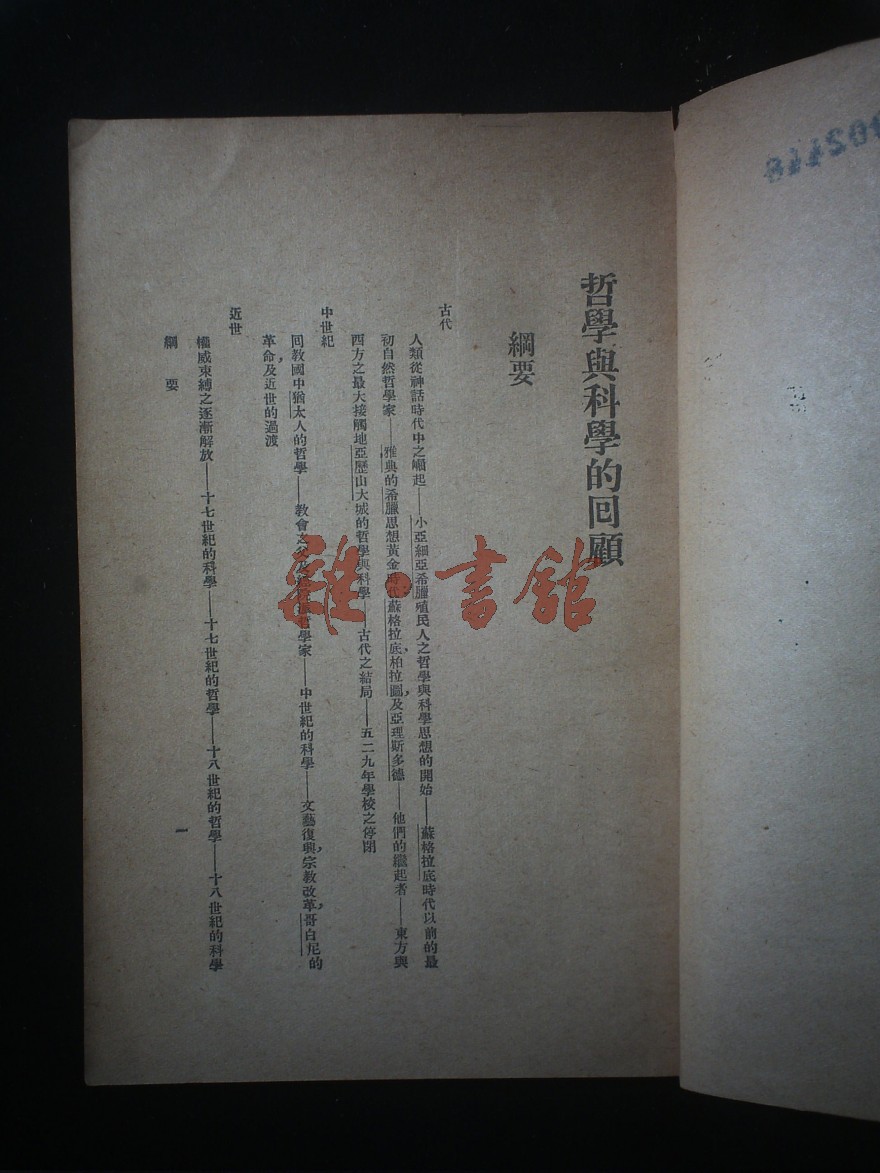 哲學與科學的回顧
綱要
古代
人類從神話時代中之崛起——小亞細亞希臘殖民人之哲學與科學思想的開始——蘇格拉底時代以前的最
初自然哲學家——雅典的希臘思想黃金時代蘇格拉底，柏拉圖，及亞理斯多德——他們的繼起者——東方與
西方之最大接觸地亞歷山大城的哲學與科學——古代之結局——五二九年學校之停閉
中世紀
回教國中猶太人的哲學——教會之父及哲學家——中世紀的科學——文藝復興，宗教改革，哥白尼的
革命，及近世的過渡
近世
權威束縛之逐漸解放——十七世紀的科學——十七世紀的哲學——十八世紀的哲學——十八世紀的科學
綱要
一
雜·書館
002118